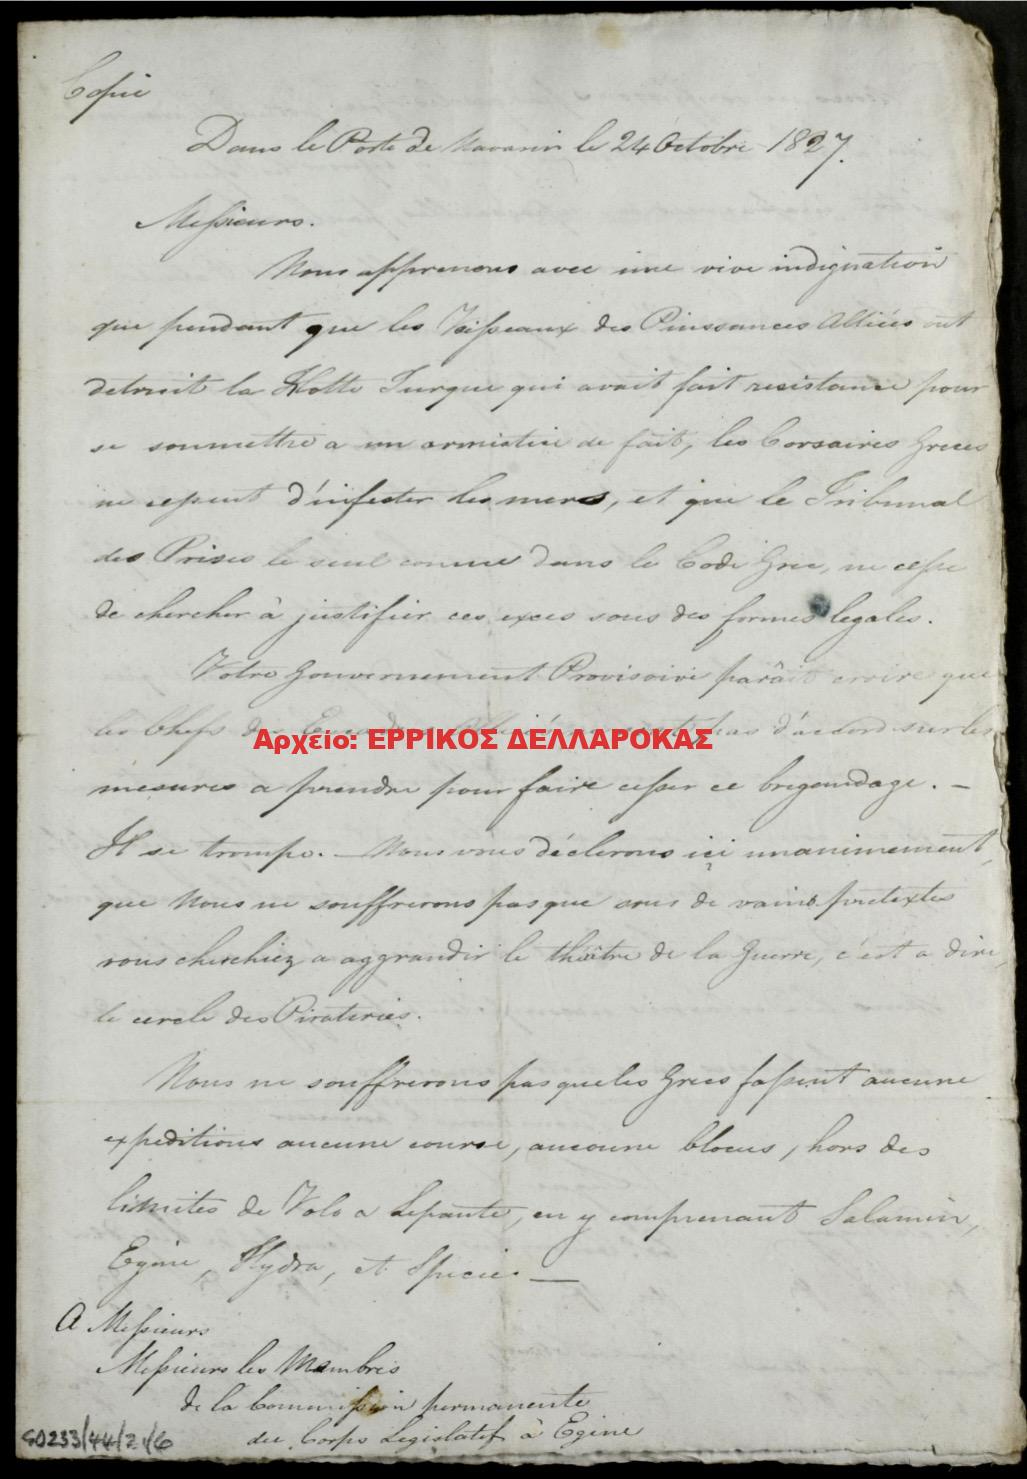 Copie
Dans le Porte de Navarin le 24 Octobre 1827.
Messieurs.
Nous apprenons avec une vive indignation
que pendant que les Vaisseaux des Puissances Alliées ont
detruit la Flotte Turque qui avait fait resistance pour
se soumettre a un armistice de fait, les Corsaires Grecs
ne cessent d'infecter les mers, et que le Tribunal
des Prises le seul connue dans le Code Grec, ne cesse
de chercher à justifier ces exces sous des formes legales.
Votre Gouvernement Provisoire parâit croire que
les Chefs des pas d'accord sur les
Αρχείο: ΕΡΡΙΚΟΣ ΔΕΛΛΑΡΟΚΑΣ
mesures a prendre pour faire cesser ce brigandage. —
Il se trompe. — Nous vous déclerons ici unanimement,
que Nous ne souffrerons pas que sous de vains pretextes
vous cherchiez a aggrandir le théâtre de la Guerre, c'est a dire,
le cercle des Pirateries.
Nous ne souffrerons pas que les Grecs fassent aucune
expeditions aucune course, aucune blocus, hors des
limites de Volo a Lepante, en y comprenant Salamin,
Egine, Hydra, et Specie. —
A Messieurs
Messieurs les Membres
de la Commission permanente
du Corps Legislatif à Egine
SO233/44/2/6